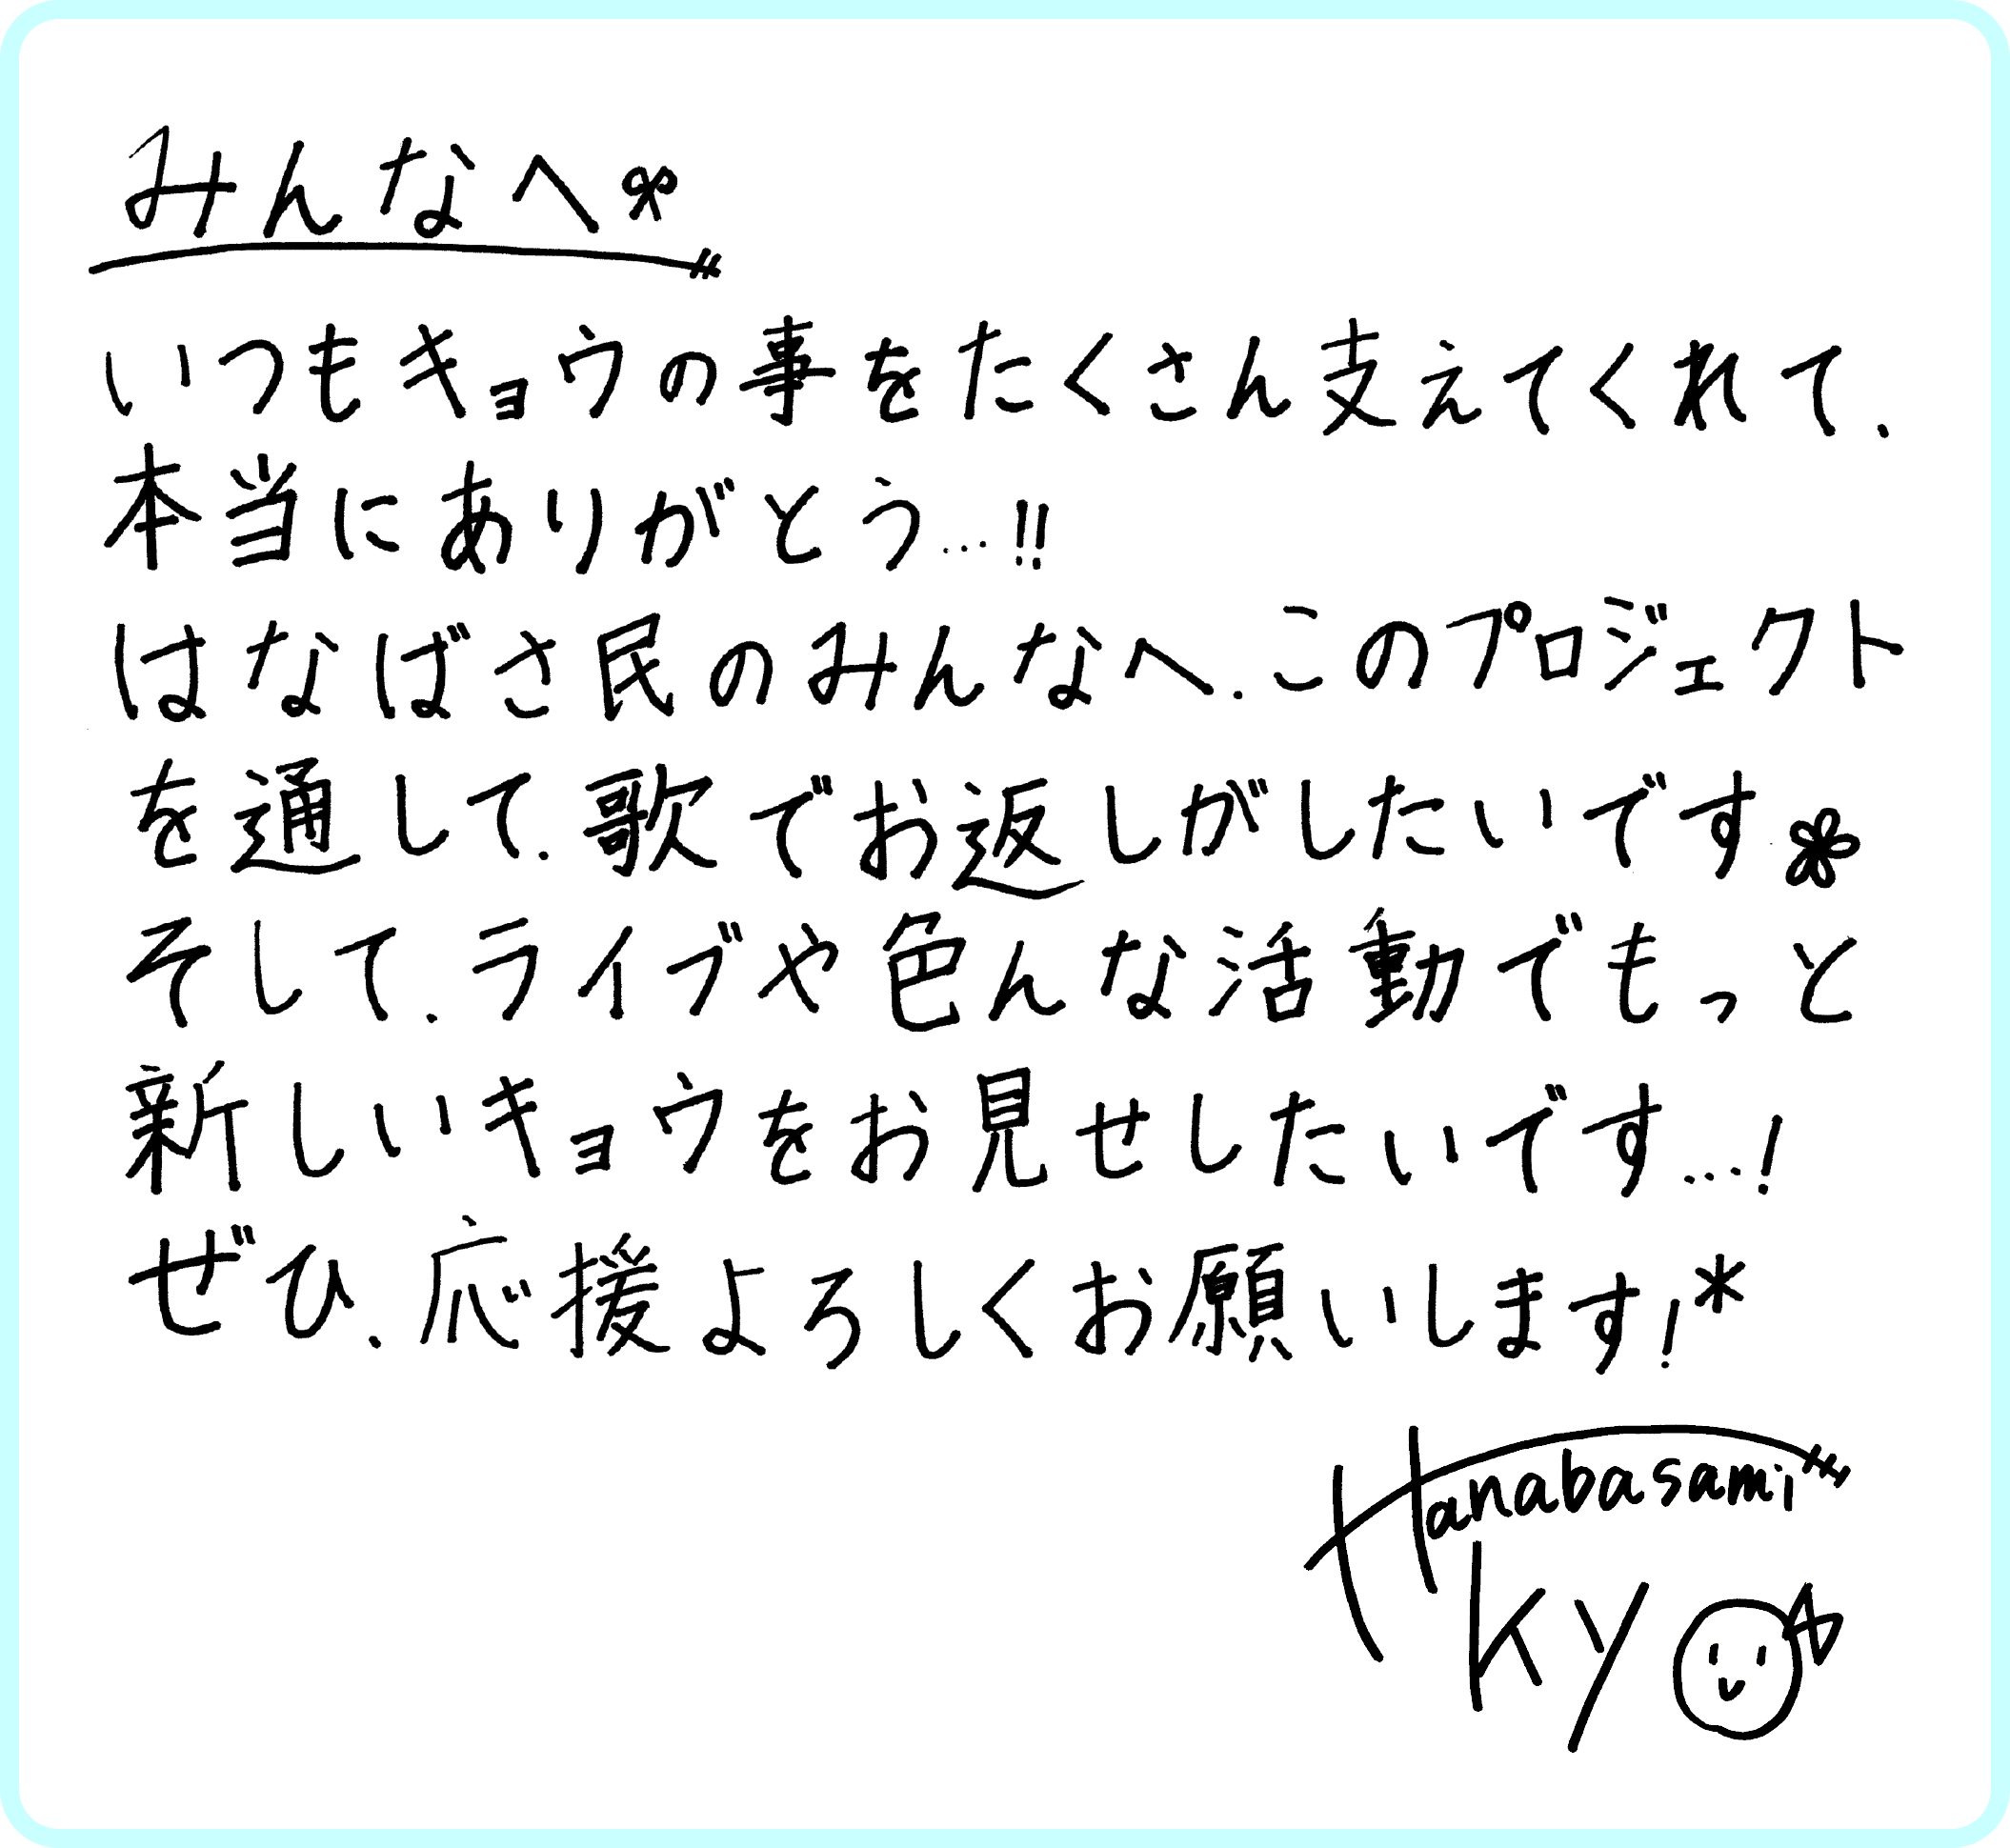 みんなへ
いつもキョウの事をたくさん支えてくれて、
本当にありがとう…!!
はなばさ民のみんなへ、このプロジェクト
を通して、歌でお返しがしたいです
そして、ライブや色んな活動でもっと
新しいキョウをお見せしたいです…!
ぜひ、応援よろしくお願いします!*
Hanabasami
KYO